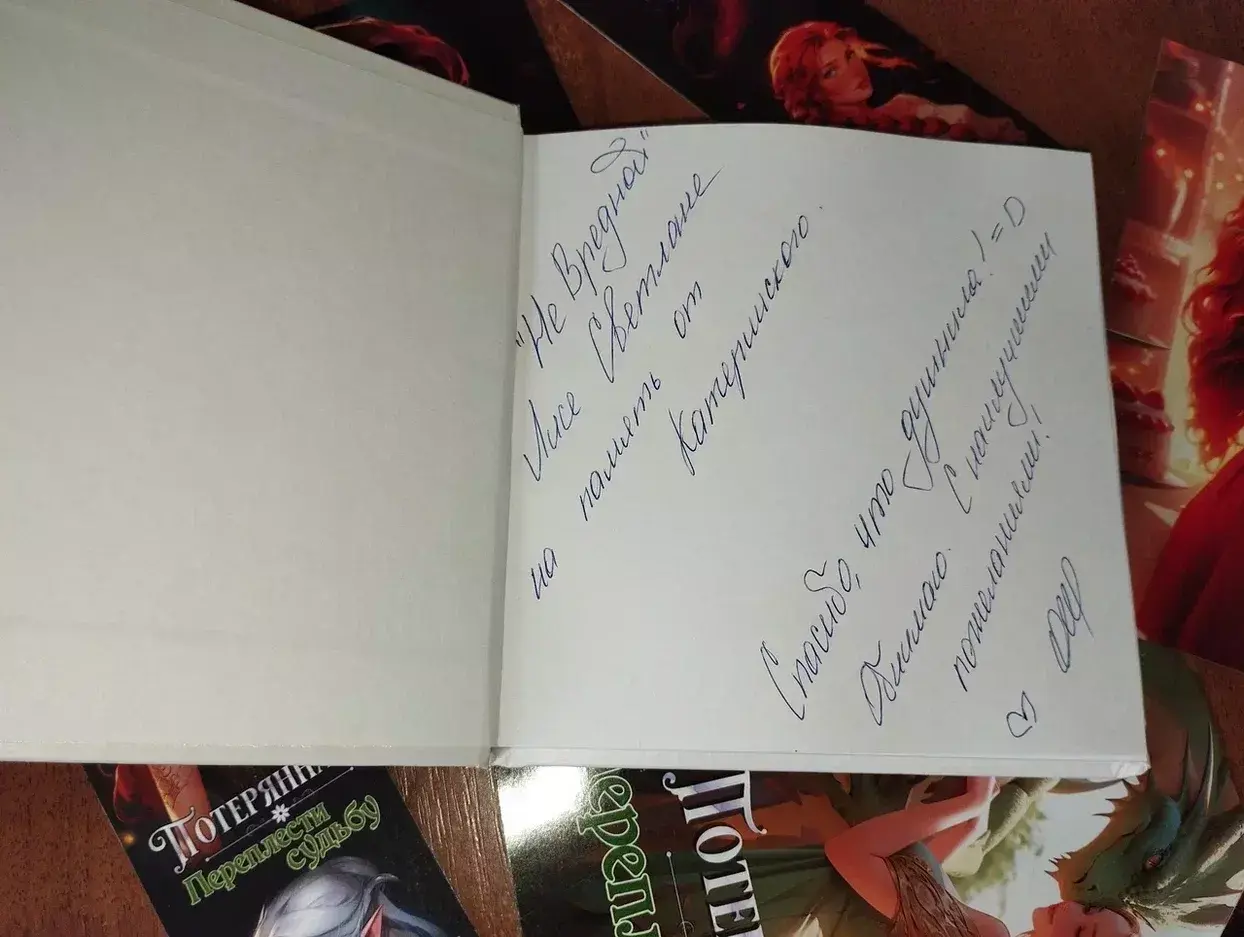 "Не Вредной"
Лисе Светлане
на память от
Катеринского.
Спасибо, что душнила! =D
Обнимаю. С наилучшими
пожеланиями!
ПОТЕРЯНН
Переплести
судьбу
ерепл
ПОТЕ